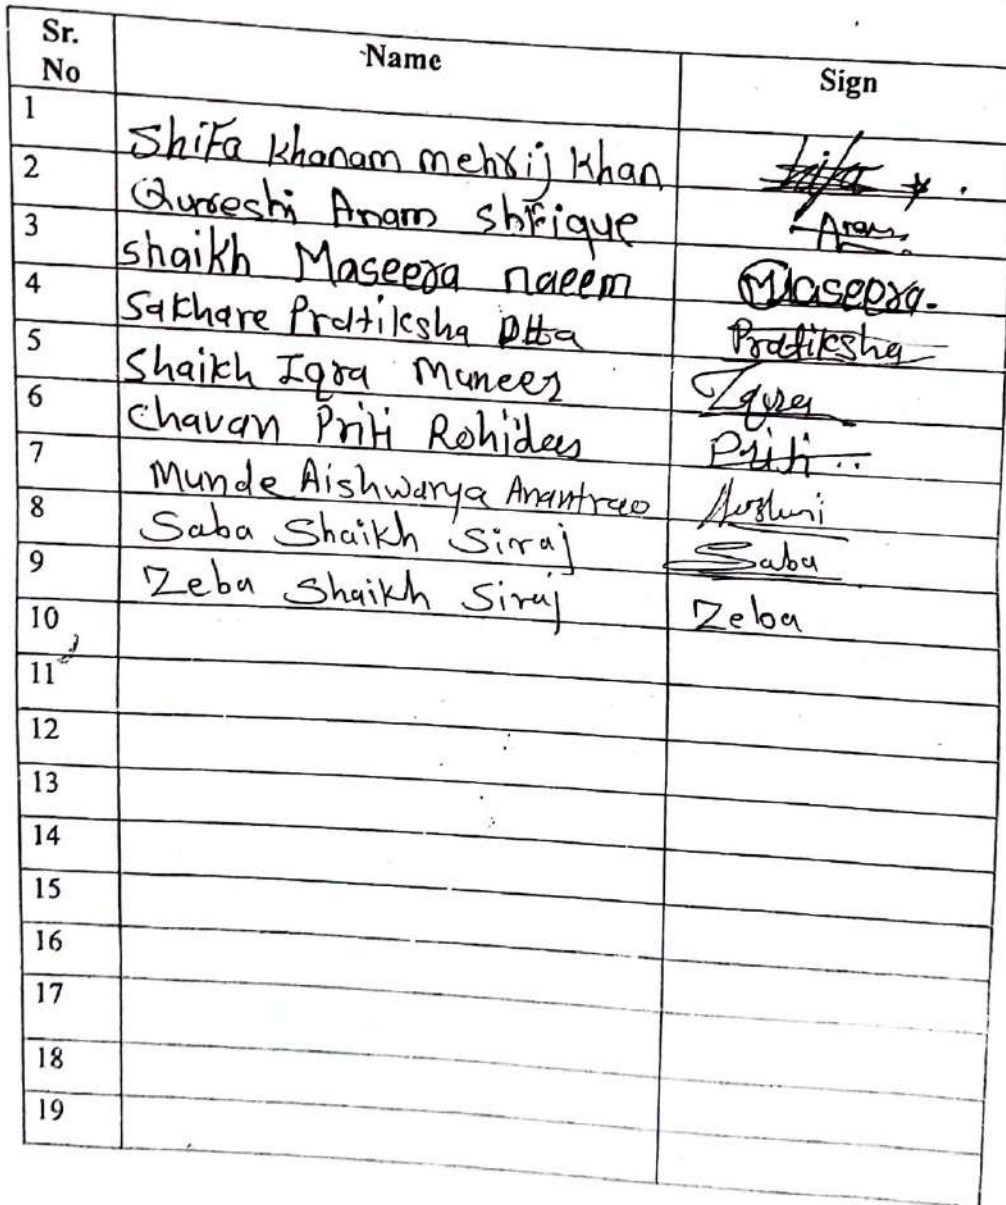 Sr. No Name Sign
1 Shifa khanam mehrij khan Shifa
2 Qureshi Anam shfique Anam
3 shaikh Maseera naeem Maseera.
4 Sakhare Pratiksha Dtta Pratiksha
5 Shaikh Iqra Muneer Iqra
6 Chavan Priti Rohidas Priti
7 Munde Aishwarya Anantrao
8 Saba Shaikh Siraj Saba
9 Zeba Shaikh Siraj Zeba
10
11
12
13
14
15
16
17
18
19